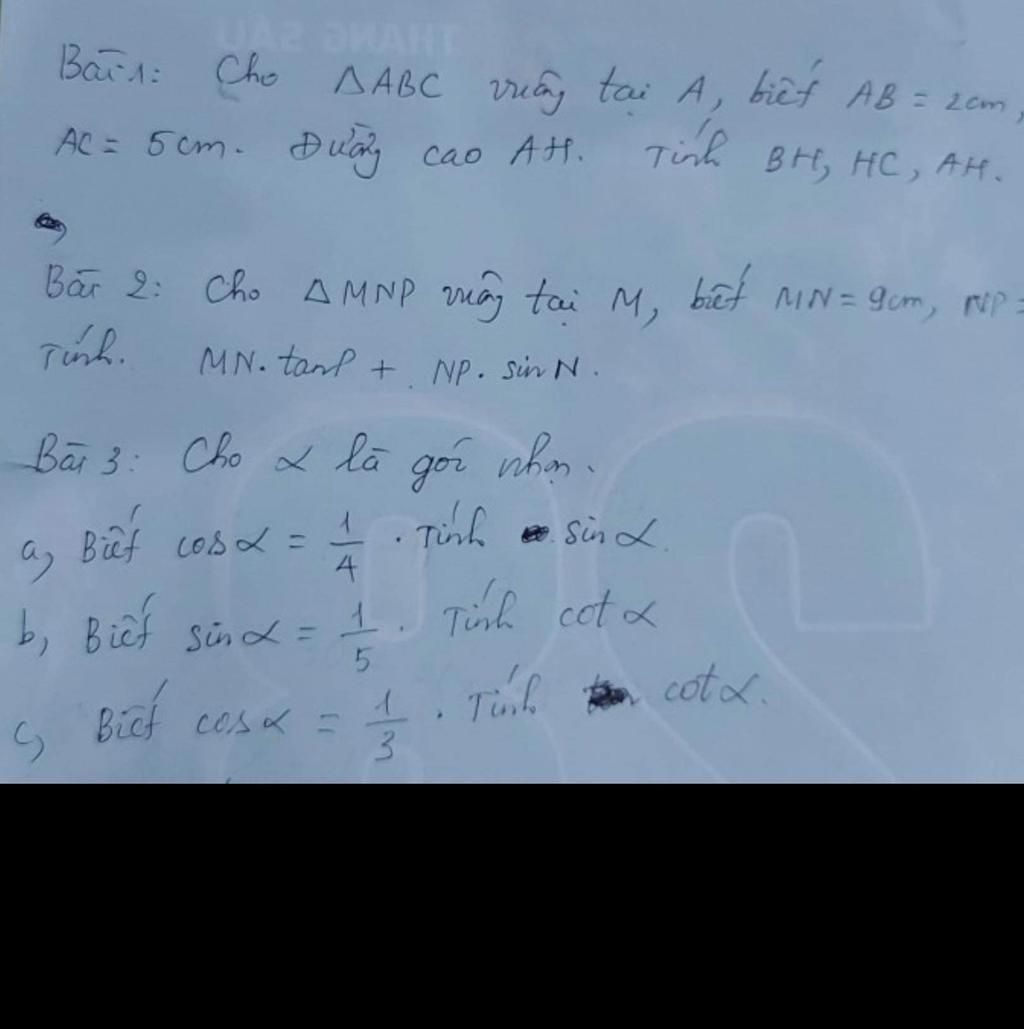 THÁNG SÁU
Bài 1: Cho ΔABC vuông tại A, biết AB = 2cm,
AC = 5cm. Đường cao AH. Tính BH, HC, AH.
Bài 2: Cho ΔMNP vuông tại M, biết MN = 9cm, NP =
Tính. MN. tanP + NP. sin N.
Bài 3: Cho α là góc nhọn.
a, Biết cos α = 1/4. Tính sin α.
b, Biết sin α = 1/5. Tính cot α
c, Biết cos α = 1/3. Tính cot α.